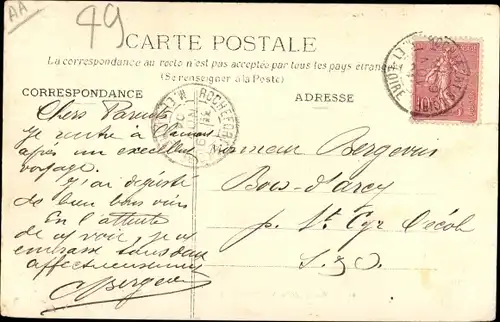 AA
49
CARTE POSTALE
La correspondance au recto n'est pas acceptée par tous les pays étrangers
(Se renseigner à la Poste)
CORRESPONDANCE
ADRESSE
Chers Parents
Je rentre à
après un excellent
voyage.
J'ai dégusté
de bien bons vins
En l'attente
de voir, je
embrasse tous deux
affectueusement
Bergevin
Monsieur Bergevin
Bois-d'arcy
p. St Cyr l'école
S. & O.
ROCHEFORT
LOIRE